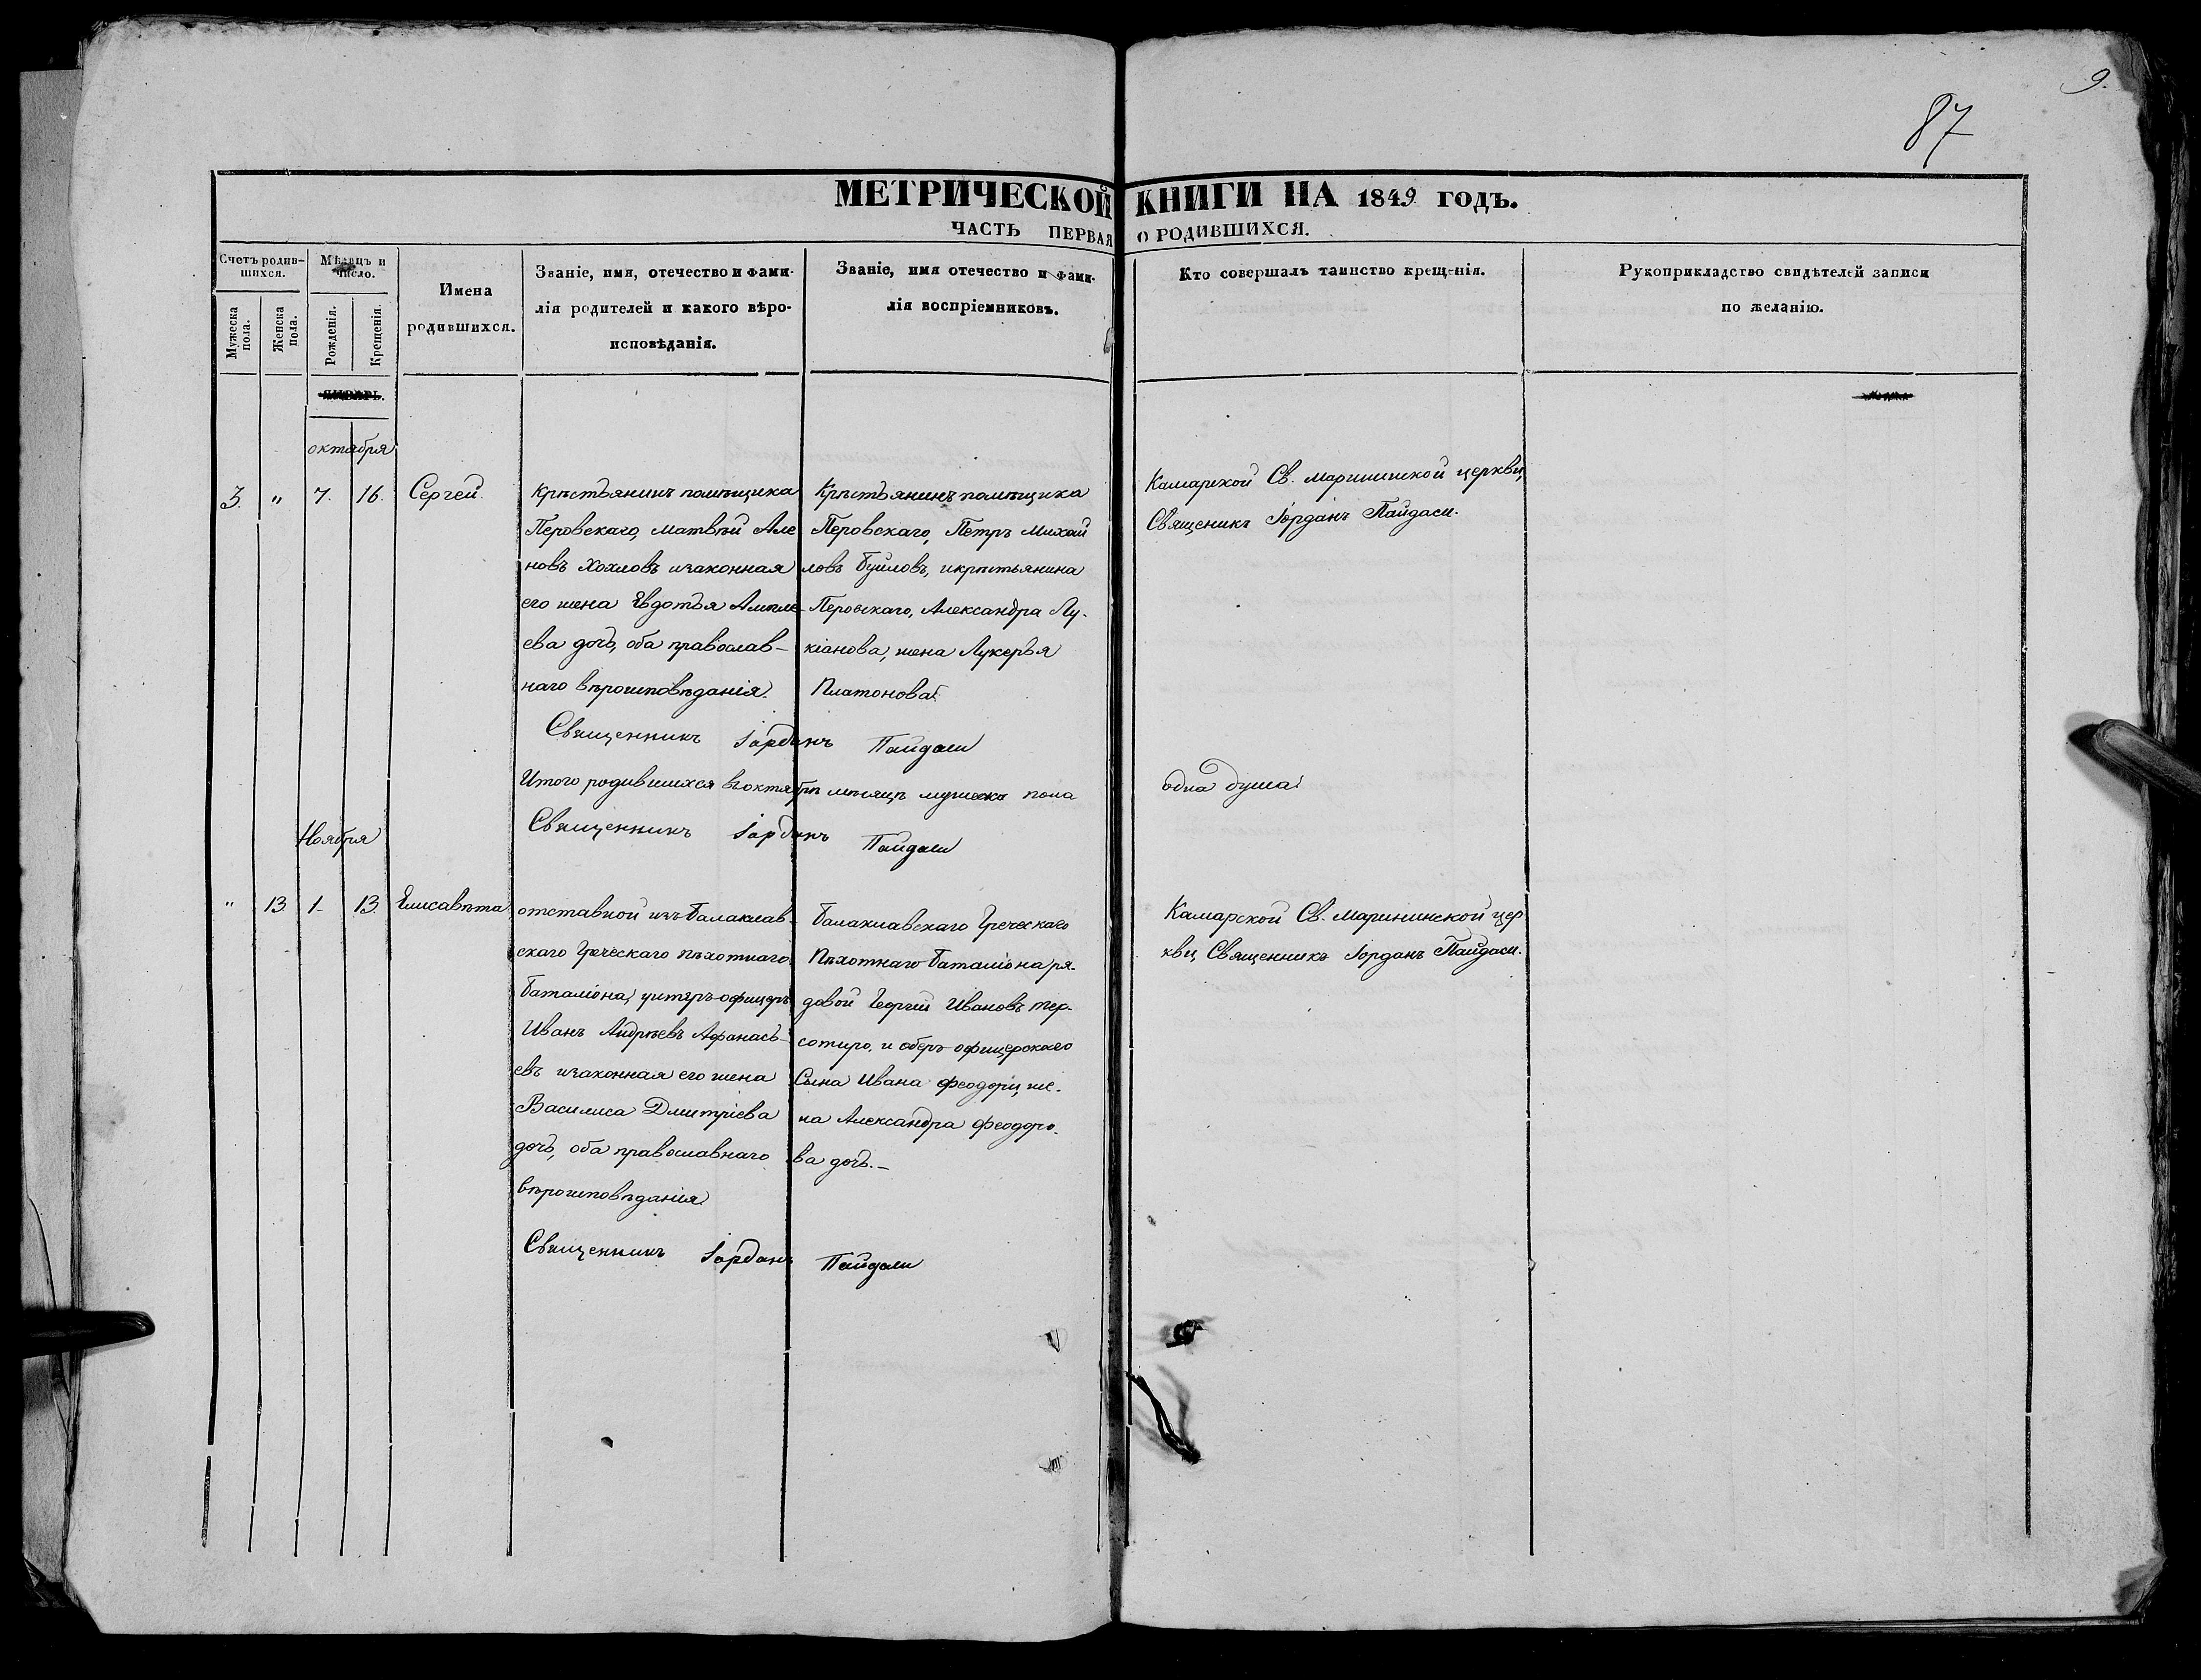 9.
87
МЕТРИЧЕСКОЙ КНИГИ НА 1849 ГОДЪ.
ЧАСТЬ ПЕРВАЯ О РОДИВШИХСЯ.
Счетъ родив-
шихся.
Мужеска пола.
Женска пола.
Мѣсяцъ и
число.
Рожденія.
Крещенія.
Имена
родившихся.
Званіе, имя, отечество и фами-
лія родителей и какого вѣро-
исповѣданія.
Званіе, имя отечество и фами-
лія воспріемниковъ.
Кто совершалъ таинство крещенія.
Рукоприкладство свидѣтелей записи
по желанію.
ЯНВАРЬ.
октября
3. " 7. 16. Сергей
Крѣстьянинъ помѣщика
Перовскаго, Матвѣй
новъ Хохловъ изаконная
его жена Евдотья
ева дочь, оба православ-
наго вѣроисповѣданія.
Крѣстьянинъ помѣщика
Перовскаго, Петръ Михай
ловъ Буиловъ, икрѣстьянина
Перовскаго, Александра Лу-
кіанова, жена Лукерья
Платонова.
Камарской Св. Марининской церкви,
Священикъ Іорданъ Пайдаси.
Священникъ Іорданъ Пайдаси
Итого родившихся въ октябрѣ мѣсяцѣ мужеска пола одна душа
Священникъ Іорданъ Пайдаси
Ноября
" 13 1. 13. Елисавѣта
отставной изъ Балаклав-
скаго Греческаго пѣхотнаго
баталіона, унтеръ-офицеръ
Иванъ Андрѣевъ Афанась-
евъ изаконная его жена
Василиса Дмитріева
дочь, оба православнаго
вѣроисповѣданія
Балаклавскаго Греческаго
Пѣхотнаго баталіона ря-
довой Георгій Ивановъ Тер-
сотиро, и оберъ-офицерскаго
Сына Ивана Феодори, же-
на Александра Феодоро-
ва дочь.-
Камарской Св. Марининской цер
кви, Священникъ Іорданъ Пайдаси.
Священникъ Іорданъ Пайдаси